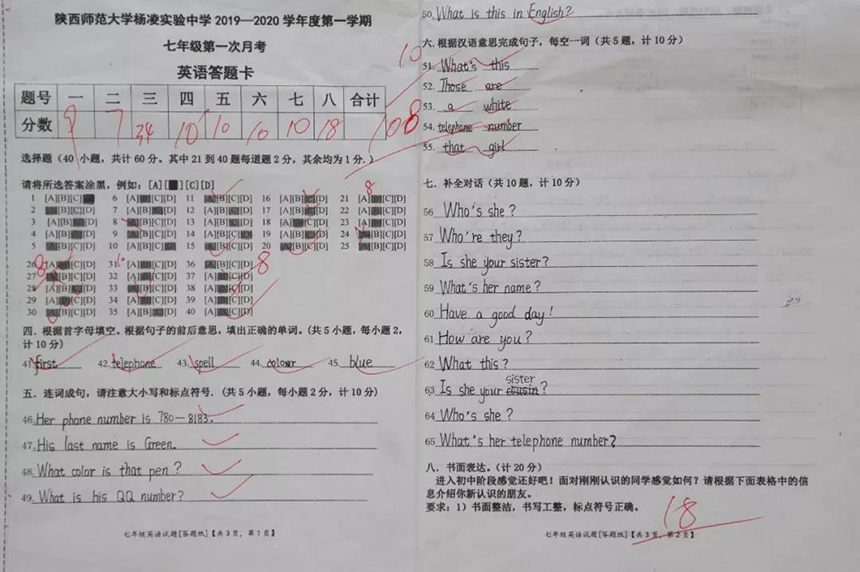 陕西师范大学杨凌实验中学2019—2020学年度第一学期
七年级第一次月考
英语答题卡
题号 一 二 三 四 五 六 七 八 合计
分数 9 7 34 10 10 10 10 18 108
选择题（40小题，共计60分。其中21到40题每道题2分，其余均为1分。）
请将所选答案涂黑，例如：[A][■][C][D]
四．根据首字母填空。根据句子的前后意思，填出正确的单词。（共5小题，每小题2，
计10分）
41. first 42. telephone 43. spell 44. colour 45. blue
五．连词成句，请注意大小写和标点符号.（共5小题，每小题2分，计10分）
46. Her phone number is 780-8183.
47. His last name is Green.
48. What color is that pen?
49. What is his QQ number?
七年级英语试题[答题纸]【共3页，第1页】
50. What is this in English?
六.根据汉语意思完成句子，每空一词（共5题，计10分）
10
51. What's this
52. Those are
53. a white
54. telephone number
55. that girl
七．补全对话（共10题，计10分）
56 Who's she?
57 Who're they?
58 Is she your sister?
59 What's her name?
60 Have a good day!
61 How are you?
62 What this?
63 Is she your sister?
64 Who's she?
65 What's her telephone number?
八．书面表达。（计20分）
进入初中阶段感觉还好吧！面对刚刚认识的同学感觉如何？请根据下面表格中的信
息介绍你新认识的朋友。
要求：1）书面整洁，书写工整，标点符号正确。
18
七年级英语试题[答题纸]【共3页，第2页】